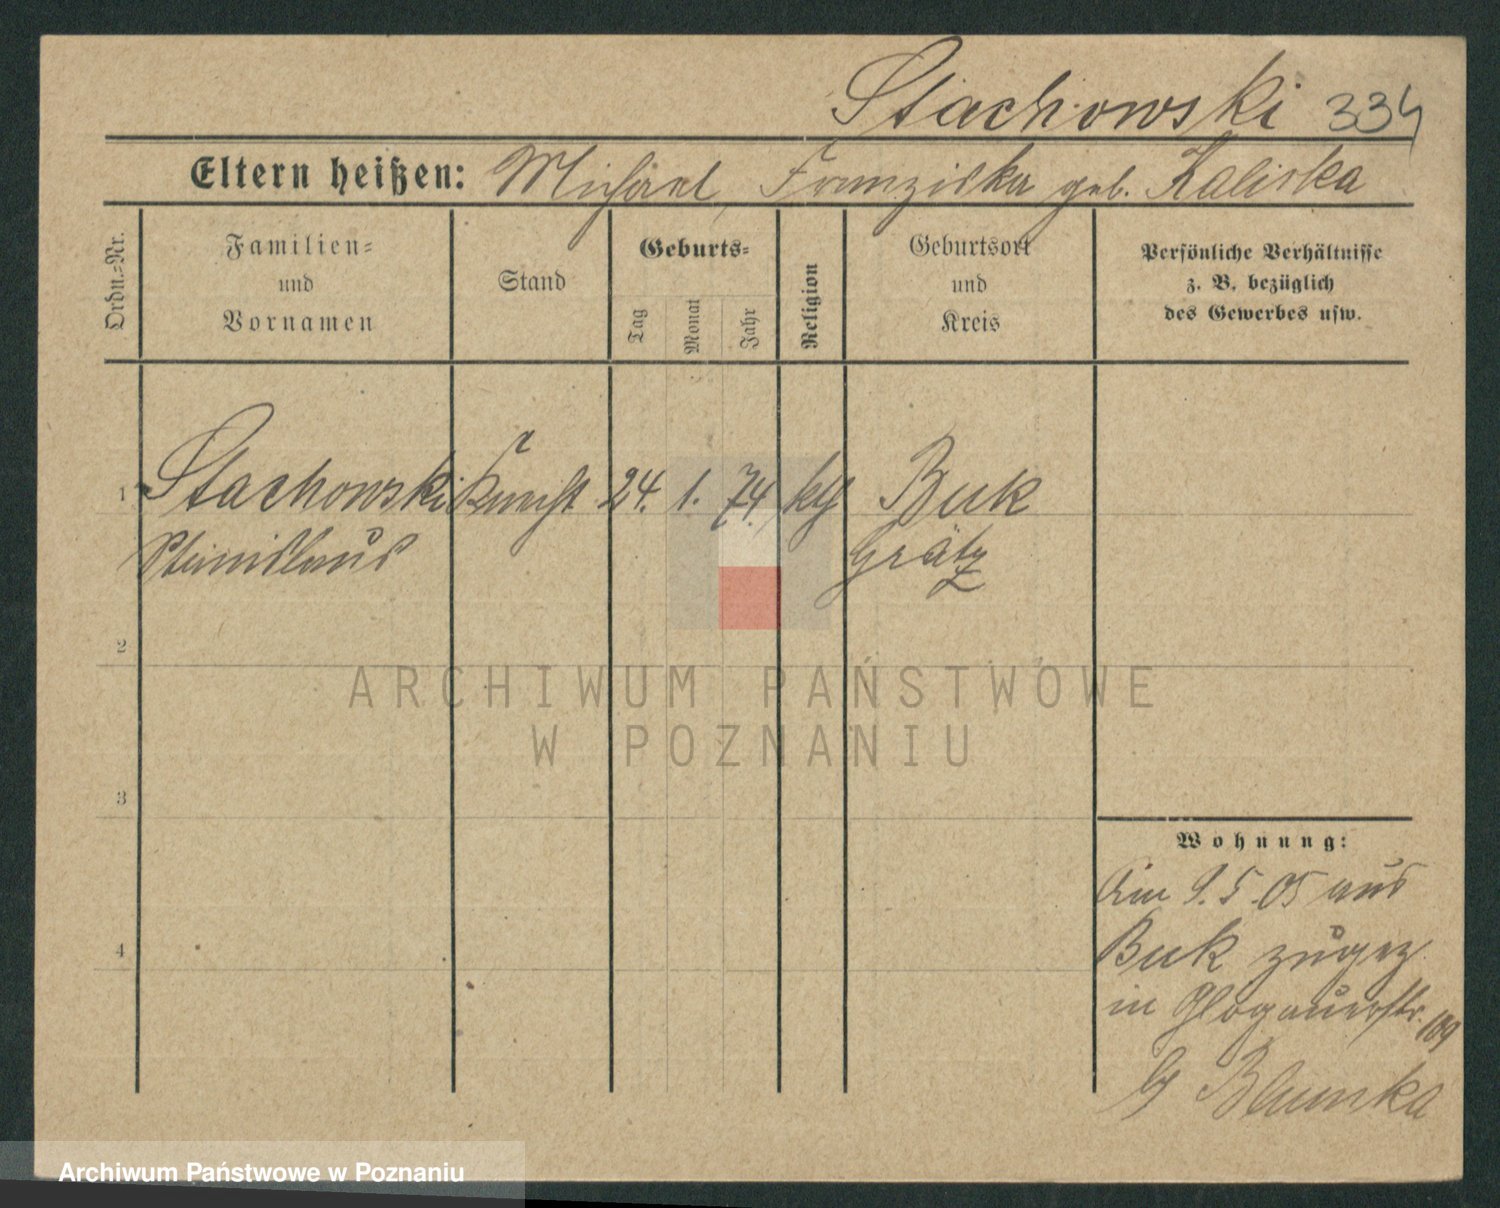 Stachowski 334
Eltern heißen: Michael, Franziska geb. Kaliska
Ordn.=Nr.
Familien=
und
Vornamen
Stand
Geburts=
Tag
Monat
Jahr
Religion
Geburtsort
und
Kreis
Persönliche Verhältnisse
z. B. bezüglich
des Gewerbes usw.
1 Stachowski Knecht 24. 1. 74. kth Buk
Stanislaus Grätz
2
3
4
Wohnung:
Am 9.5.05 aus
Buk zugez.
in Glogauerstr. 109
b/ Blumka
ARCHIWUM PAŃSTWOWE
W POZNANIU
Archiwum Państwowe w Poznaniu